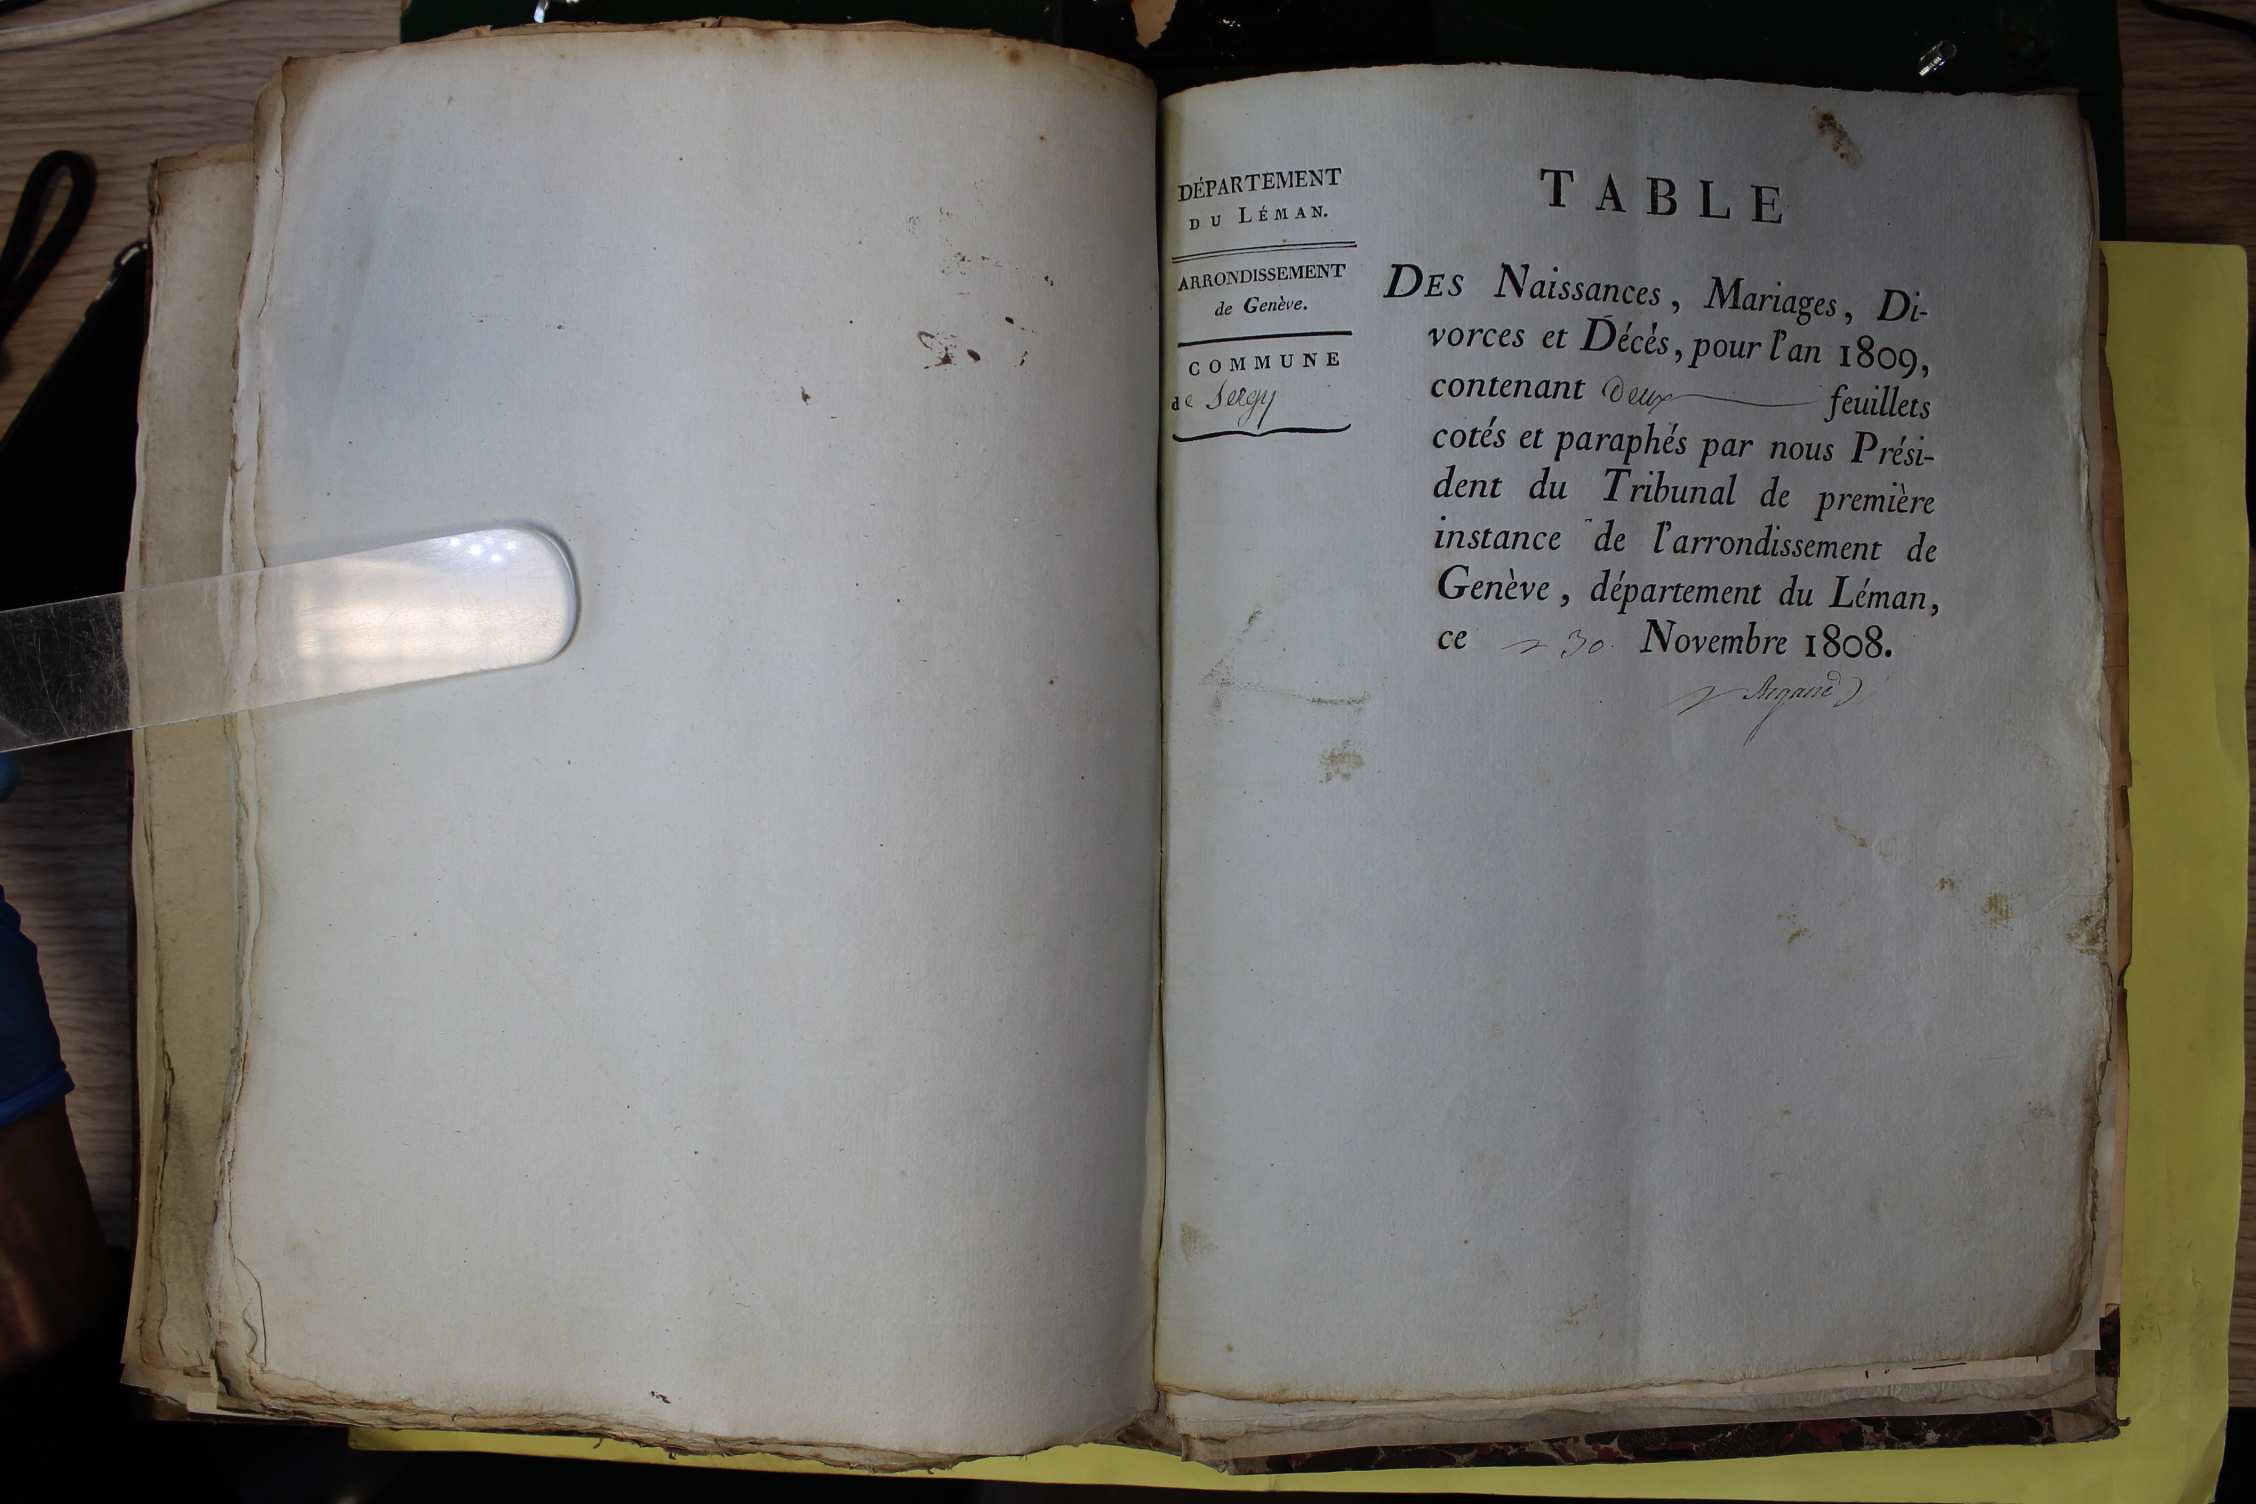 DÉPARTEMENT
DU LÉMAN.
ARRONDISSEMENT
de Genève.
COMMUNE
de Sergy
TABLE
DES Naissances, Mariages, Di-
vorces et Décés, pour l'an 1809,
contenant deux feuillets
cotés et paraphés par nous Prési-
dent du Tribunal de première
instance de l'arrondissement de
Genève, département du Léman,
ce 30. Novembre 1808.
Argand